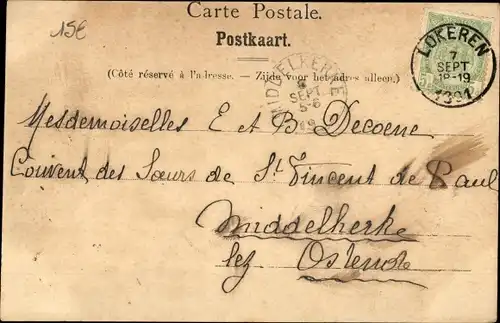 15€
Carte Postale.
Postkaart.
(Côté réservé à l'adresse. - Zijde voor het adres alleen.)
LOKEREN
7
SEPT
18-19
MIDDELKERKE
SEPT
5-6
Mesdemoiselles E et B Decoene
Couvent des Sœurs de St Vincent de Paul
Middelkerke
lez Ostende